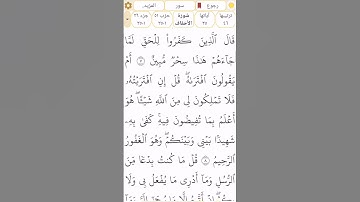 رجوع
سور
المزيد
ترتيبها
٤٦
آياتها
٣٥
سُورَة
الأحقاف
جزء ٢٦
قَالَ ٱلَّذِينَ كَفَرُوا۟ لِلْحَقِّ لَمَّا
جَآءَهُمْ هَـٰذَا سِحْرٌ مُّبِينٌ ٧ أَمْ
يَقُولُونَ ٱفْتَرَىٰهُ ۖ قُلْ إِنِ ٱفْتَرَيْتُهُۥ
فَلَا تَمْلِكُونَ لِى مِنَ ٱللَّهِ شَيْـًٔا ۖ هُوَ
أَعْلَمُ بِمَا تُفِيضُونَ فِيهِ ۖ كَفَىٰ بِهِۦ
شَهِيدًۢا بَيْنِى وَبَيْنَكُمْ ۖ وَهُوَ ٱلْغَفُورُ
ٱلرَّحِيمُ ٨ قُلْ مَا كُنتُ بِدْعًا مِّنَ
ٱلرُّسُلِ وَمَآ أَدْرِى مَا يُفْعَلُ بِى وَلَا